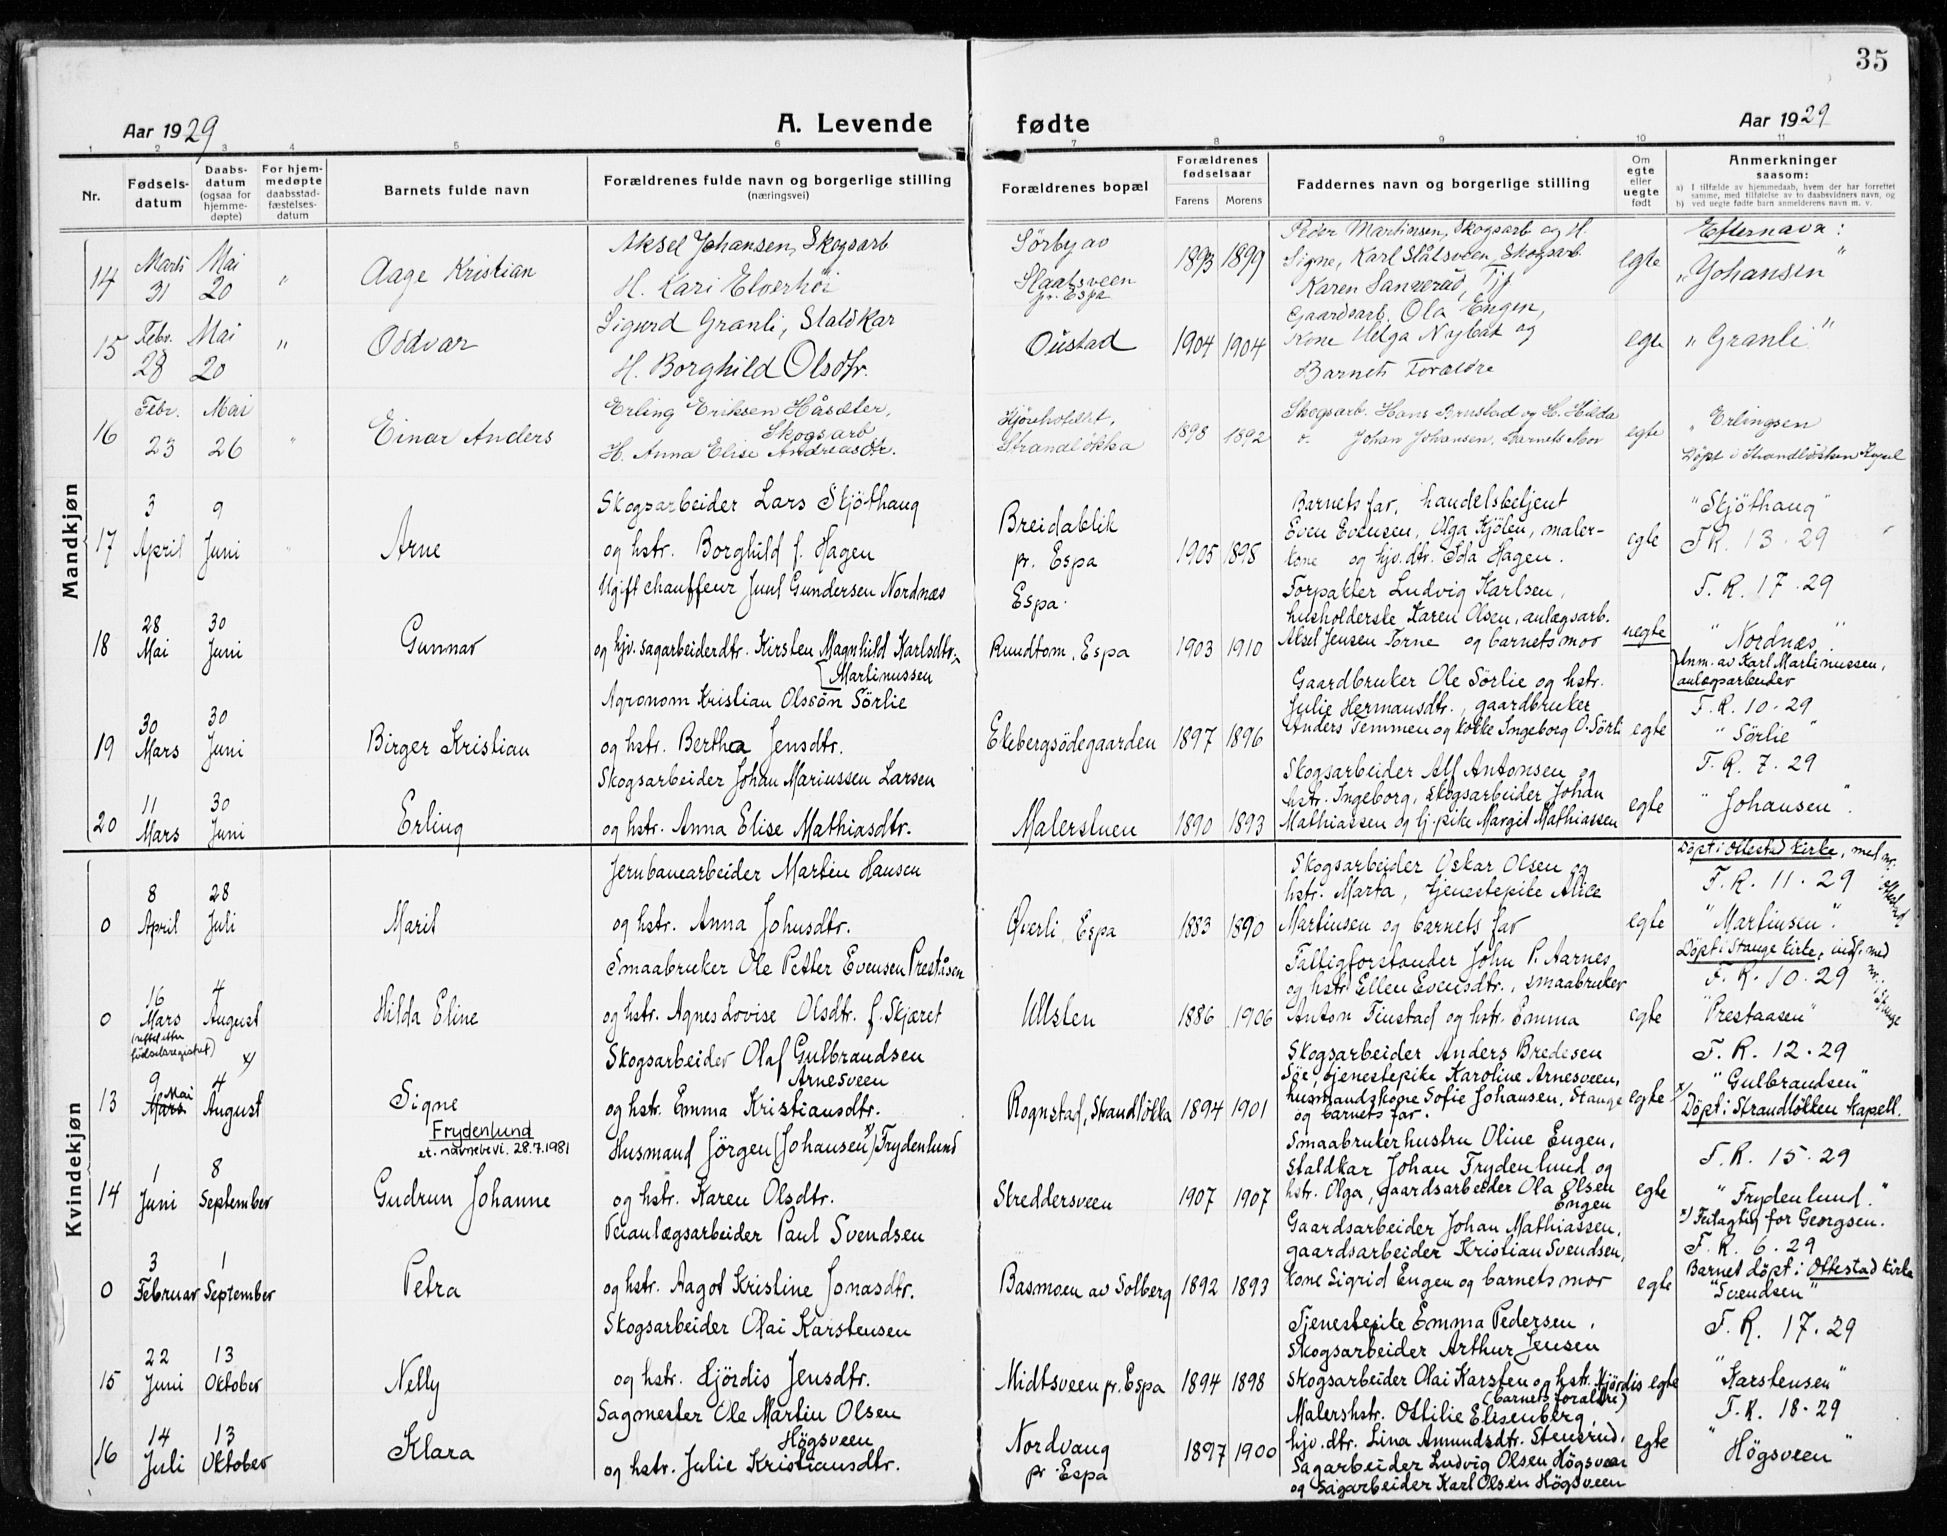 35
Aar 1929
A. Levende fødte
Aar 1929
1 2 3 4 5 6 7 8 9 10 11
Nr.
Fødsels-
datum
Daabs-
datum
(ogsaa for
hjemme-
døpte)
For hjem-
medøpte
daabsstad-
fæstelses-
datum
Barnets fulde navn
Forældrenes fulde navn og borgerlige stilling
(næringsvei)
Forældrenes bopæl
Forældrenes
fødselsaar
Farens
Morens
Faddernes navn og borgerlige stilling
Om
egte
eller
uegte
født
Anmerkninger
saasom:
a) I tilfælde av hjemmedaab, hvem der har forrettet
samme, med tilføielse av to daabsvidners navn, og
b) ved uegte fødte barn anmelderens navn m. v.
Mandkjøn
14
Marts
31
Mai
20
"
Aage Kristian
Aksel Johansen, Skogsarb
H. Kari Elverhöi
Sörby av
Slaatsveen
pr. Espa
1893
1899
Peder Martinsen, Skogsarb og H.
Signe, Karl Slåtsveen, Skogsarb.
Karen Sannerud,
egte
Efternavn:
"Johansen"
15
Febr.
28
Mai
20
"
Oddvar
Sigurd Granli, Staldkar
H. Borghild Olsdtr.
Oustad
1904
1904
Gaardsarb. Ola Engen,
Kone Helga og
Barnets Forældre
egte
"Granli"
16
Febr.
23
Mai
26
"
Einar Anders
Erling Eriksen Håsæter,
Skogsarb
H. Anna Elise Andreasdtr.
Strandløkka
1898
1892
Skogsarb. Hans Brustad og H. Hilda
o. Johan Johansen, Barnets Mor
egte
" Erlingsen
Döpt i Strandløkken Kapel
17
3
April
9
Juni
Arne
Skogsarbeider Lars Skjöthaug
og hstr. Borghild f. Hagen
Breidablik
pr. Espa
1905
1895
Barnets far, handelsbetjent
Even Evensen, Olga Kjölen, maler-
kone og hjv. dtr. Ida Hagen.
egte
"Skjöthaug"
F.R. 13-29
18
28
Mai
30
Juni
Gunnar
Ugift chauffeur Juul Gundersen Nordnæs
og hjv. sagarbeiderdtr. Kirsten Magnhild Karlsdtr.
(Martinussen
Espa.
Rundtom, Espa
1903
1910
Forpakter Ludvig Karlsen,
husholderske Karen Olsen, anlægsarb.
Aksel Jensen Torne og barnets mor
uegte
F. R. 17-29
"Nordnæs".
Anm. av Karl Martinussen,
anlægsarbeider
19
30
Mars
30
Juni
Birger Kristian
Agronom Kristian Olssön Sörlie
og hstr. Berthea Jensdtr.
Ekebergsödegaarden
1897
1896
Gaardbruker Ole Sörlie og hstr.
Julie Hermansdtr., gaardbruker
Anders Temmen og kokke Ingeborg O. Sörli
egte
F. R. 10-29
"Sörlie"
20
11
Mars
30
Juni
Erling
Skogsarbeider Johan Mariussen Larsen
og hstr. Anna Elise Mathiasdtr.
Malerstuen
1890
1893
Skogsarbeider Alf Antonsen og
hstr. Ingeborg, skogsarbeider Johan
Mathiassen og tj. pike Margit Mathiassen
egte
F. R. 7-29
"Johansen".
Kvindekjøn
0
8
April
28
Juli
Marit
Jernbanearbeider Martin Hansen
og hstr. Anna Johusdtr.
Øverli, Espa
1883
1890
Skogsarbeider Oskar Olsen og
hstr. Marta, tjenestepike Alice
Martinsen og barnets far
egte
Döpt i Ottestad kirke, med nr.
i Ottestad
F. R. 11-29
"Martinsen".
0
16
Mars
(rettet efter
födselsregistret)
4
August
Hilda Eline
Smaabruker Ole Petter Evensen Preståsen
og hstr. Agnes Lovise Olsdtr. f. Skjæret
Ullslen
1886
1906
Fattigforstander John P. Aarnes
og hstr Ellen Evensdtr., smaabruker
Anton Finstad og hstr. Emma
egte
Döpt i Stange kirke, indf. med
nr. i Stange
F. R. 10-29
"Prestaasen"
13
9
Mai
Mars
x)
4
August
Signe
Skogsarbeider Olaf Gulbrandsen
Arnesveen
og hstr. Emma Kristiansdtr.
Rognstad, Strandlökka
1894
1901
Skogsarbeider Anders Bredesen
Söe, tjenestepike Karoline Arnesveen,
husmandskone Sofie Johansen, Stange
og barnets far.
egte
F. R. 12-29
"Gulbrandsen"
x) Döpt i Strandlökken kapell.
14
1
Juni
8
September
Frydenlund
et. navnebevi. 28.7.1981
Gudrun Johanne
Husmand Jörgen (Johansen x) Frydenlund
og hstr. Karen Olsdtr.
Streddersveen
1907
1907
Smaabrukerhustru Oline Engen,
Staldkar Johan Frydenlund og
hstr. Olga, gaardsarbeider Ola Olsen
Engen
egte
F. R. 15-29
"Frydenlund."
x) Feilagtig for Georgsen.
0
3
Februar
1
September
Petra
Veianlægsarbeider Paul Svendsen
og hstr. Aagot Kristine Jonasdtr.
Basmoen av Solberg
1892
1893
Gaardsarbeider Johan Mathiassen,
gaardsarbeider Kristian Svendsen,
kone Sigrid Engen og barnets mor
egte
F. R. 6-29
Barnet döpt i Ottestad kirke
"Svendsen"
15
22
Juni
13
Oktober
Nelly
Skogsarbeider Olai Karstensen
og hstr. Hjördis Jensdtr.
Midtsveen pr. Espa
1894
1898
Tjenestepike Emma Pedersen,
Skogsarbeider Arthur Jensen
Skogsarbeider Olai Karsten og hstr. Hjördis
(barnets foraldre)
egte
F. R. 17-29
"Karstensen"
16
14
Juli
13
Oktober
Klara
Sagmester Ole Martin Olsen
Högsveen
og hstr. Julie Kristiansdtr.
Nordvang
pr. Espa
1897
1900
Malershstr. Ottilie Elisenberg,
hjv. dtr. Lina Amundsdtr. Stensrud,
Sagarbeider Ludvig Olsen Högsveen
og Sagarbeider Karl Olsen Högsveen
egte
F. R. 18-29
"Högsveen"